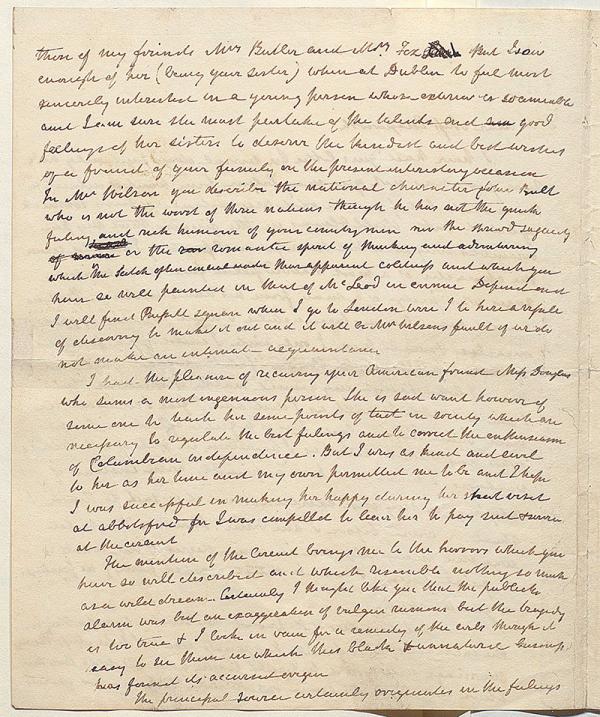 than of my friends Mrs Butler and Mrs Fox But I saw
enough of her (being your sister) when at Dublin to feel most
sincerely interested in a young person whose exterior is so amiable
and I am sure she must partake of the talents and good
feelings of her sisters to deserve the kindest and best wishes
of a friend of your family on the present interesting occasion
In Mrs Wilson you describe the national character John Bull
who is not the worst of three nations though he has not the quick
feeling and rich humour of your countrymen nor the shrewd sagacity
or the romantic spirit of thinking and adventuring
which the Scotch often conceal under their apparent coldness and which you
have so well painted in that of McLeod in ennui Depend on it
I will find Russell square when I go to London were I to hire a vessel
of discovery to make it out and it will be Mrs Wilsons fault if we do
not make an internal acquaintance
I had the pleasure of receiving your American friend Miss Douglas
who seems a most ingenuous person She is sad want however of
some one to teach her some points of tact in society which are
necessary to regulate the best feelings and to correct the enthusiasm
of Columbian independence. But I was as kind and civil
to her as her time and my own permitted me to be and I hope
I was successful in making her happy during her short visit
at abbotsford for I was compelled to leave her to pay suit & service
at the circuit
The mention of the Circuit brings me to the horrors which you
have so well described and which resemble nothing so much
as a wild dream. Certainly I thought like you that the publick
alarm was but an exaggeration of vulgar rumour but the tragedy
is too true & I look in vain for a remedy of the evils though it
easy to see them in which this black & unnatural business
has found its accursed origin
The principal source certainly originates in the feelings